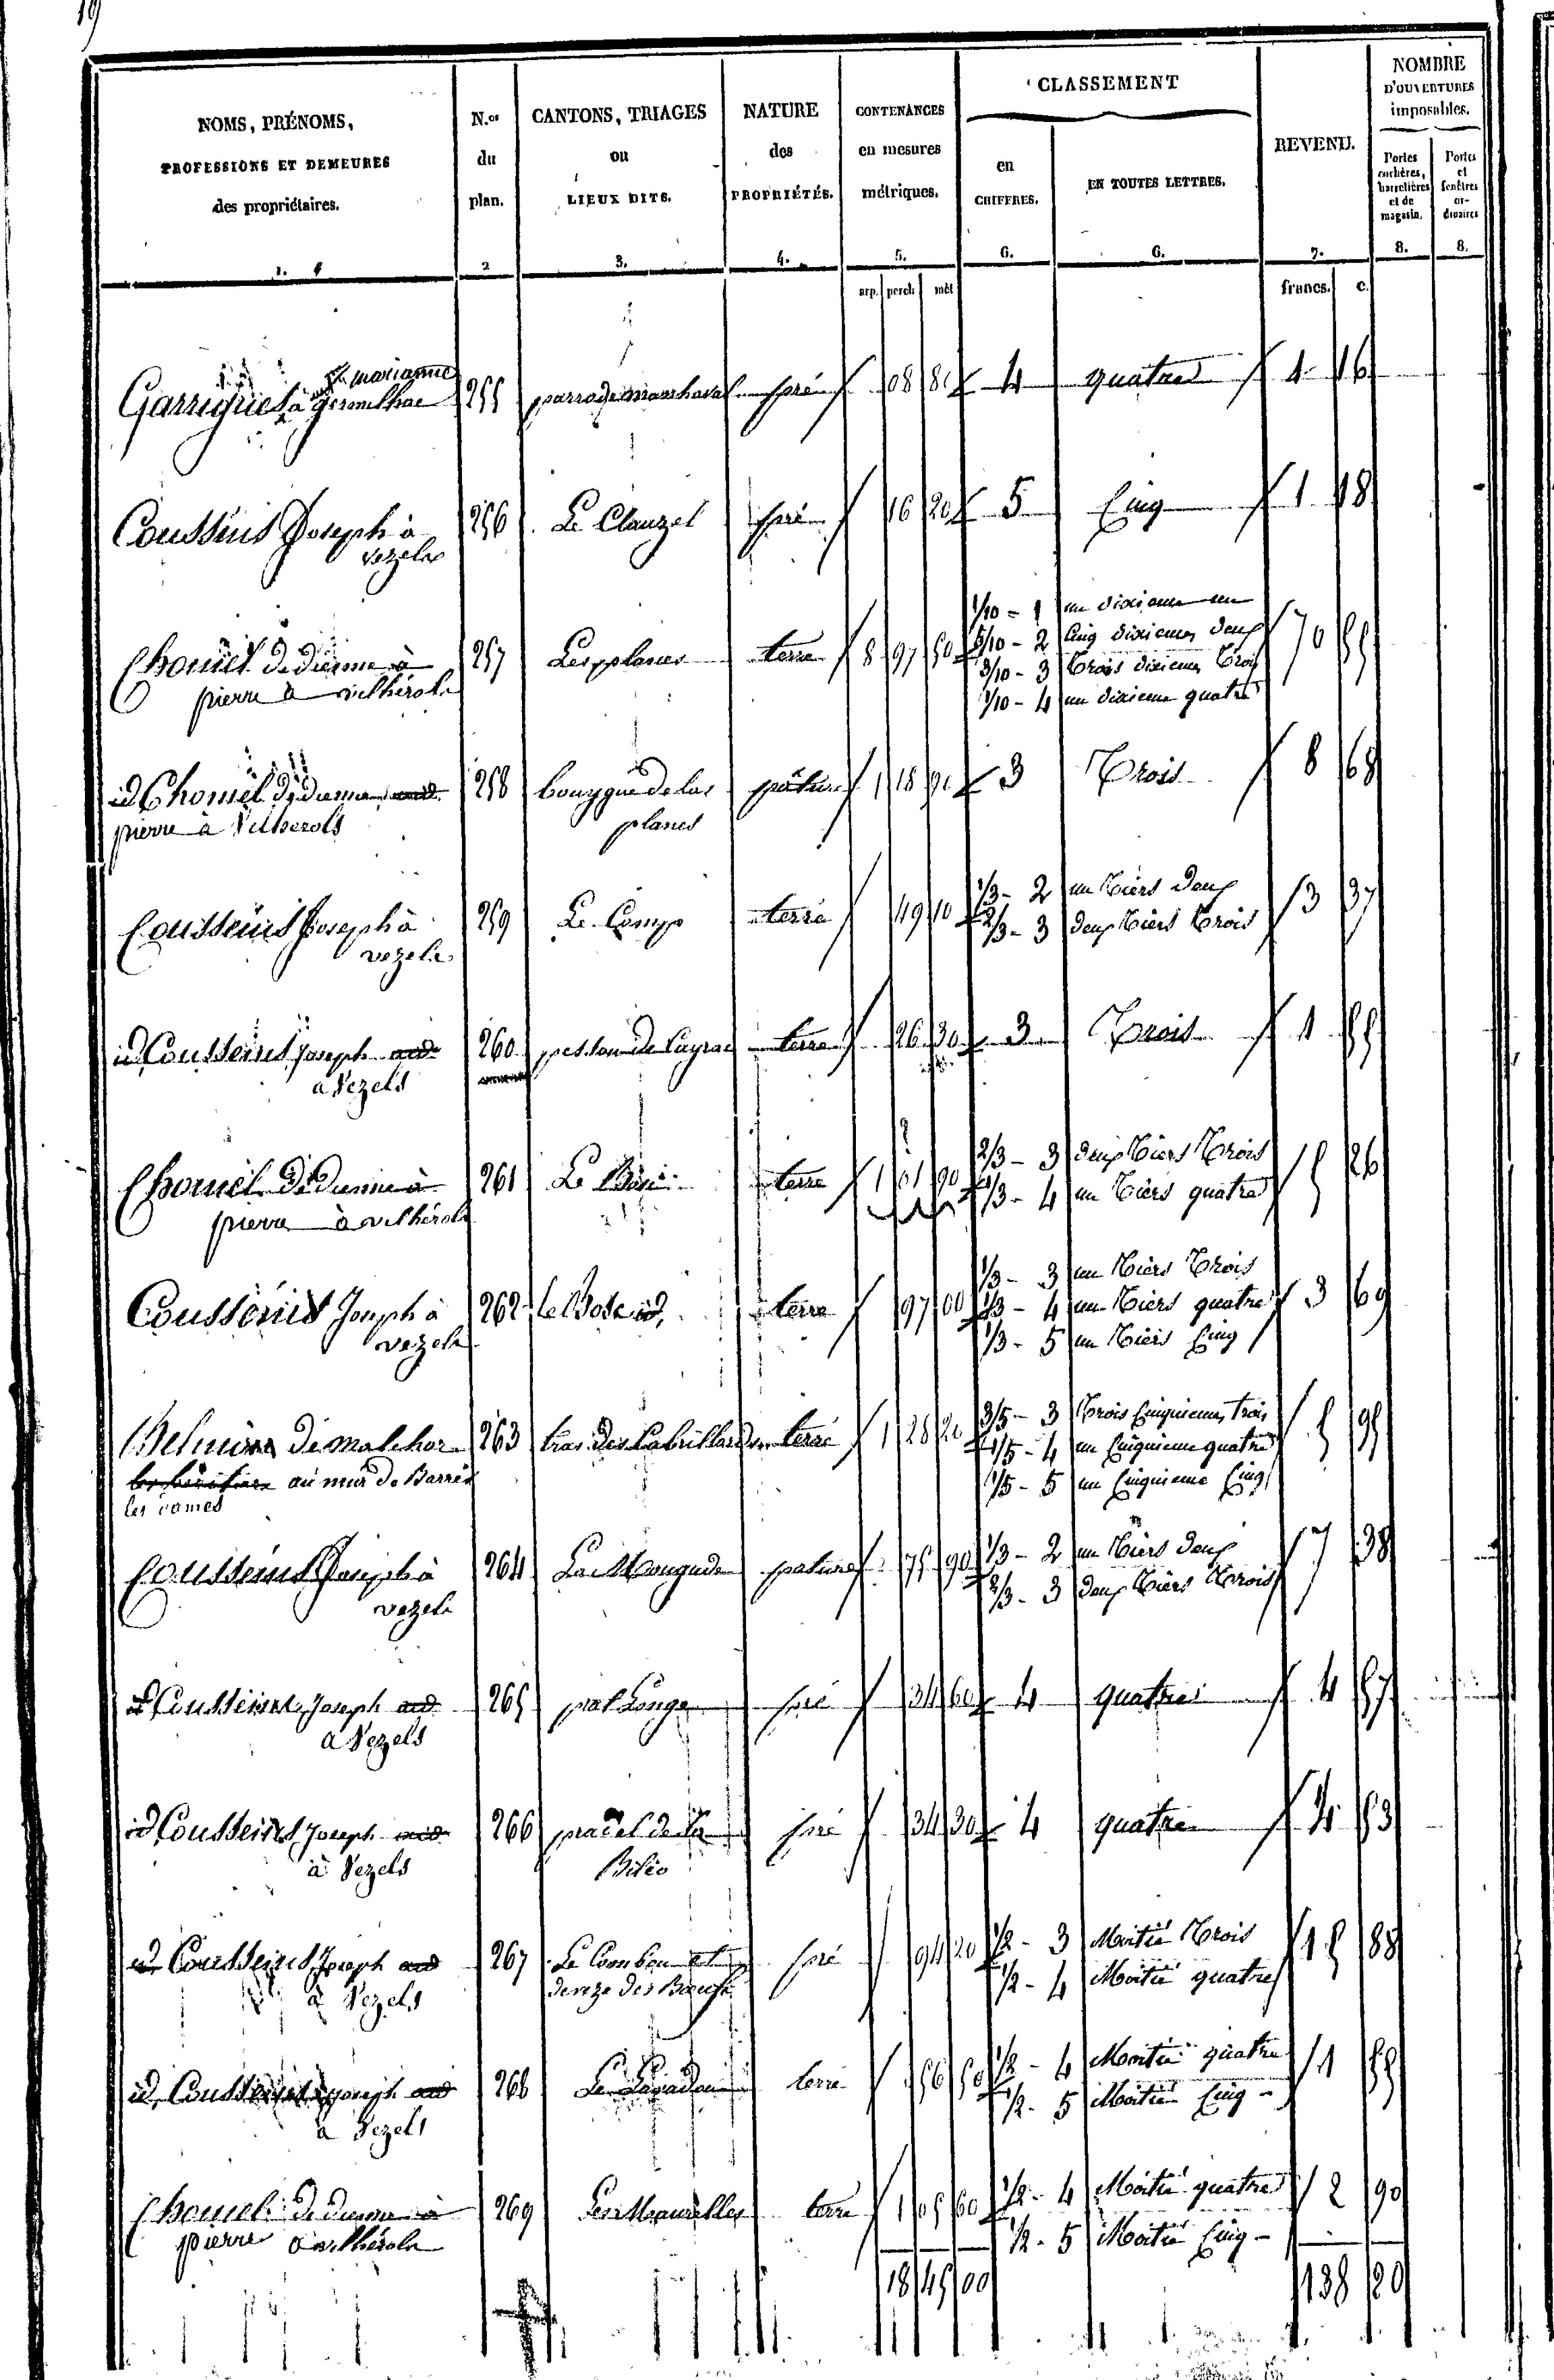 19
NOMS, PRÉNOMS, PROFESSIONS ET DEMEURES des propriétaires. 1.
N.os du plan. 2
CANTONS, TRIAGES ou LIEUX DITS. 3.
NATURE des PROPRIÉTÉS. 4.
CONTENANCES en mesures métriques. 5.
CLASSEMENT
en CHIFFRES. 6.
EN TOUTES LETTRES. 6.
REVENU. 7.
NOMBRE D'OUVERTURES imposables.
Portes cochères, charretières et de magasin. 8.
Portes et fenêtres ordinaires 8.
arp. perch. mèt francs. c.
marianne
Garrigues à 255 pré 08 80 4 quatre 4 16
Coussens Joseph à 256 Le Clauzel pré 16 20 5 Cinq 1 18
vezels
1/10 - 1 un dixieme un
Chomel de dienne à 257 Les planes terre 8 97 50 5/10 - 2 Cinq dixiemes deux 70 55
pierre à vilhérols 3/10 - 3 Trois dixiemes Trois
1/10 - 4 un dixieme quatre
id Chomel de dienne 258 bouygue de las pâture 1 18 90 3 Trois 8 68
pierre à Vilherols planes
1/3 - 2 un Tiers deux
Coussens Joseph à 259 Le Camp terre 49 10 2/3 - 3 deux Tiers Trois 3 37
vezels
id Coussens Joseph 260 terre 26 30 3 Trois 1 55
à Vezels
2/3 - 3 deux Tiers Trois
Chomel de dienne à 261 Le terre 1 61 90 1/3 - 4 un Tiers quatre 5 26
pierre à vilhérols
1/3 - 3 un Tiers Trois
Coussens Joseph à 262 le Bose id. terre 97 00 1/3 - 4 un Tiers quatre 3 69
vezels 1/3 - 5 un Tiers Cinq
3/5 - 3 Trois Cinquiemes trois
de malchor 263 terre 1 28 20 1/5 - 4 un Cinquieme quatre 5 95
au mur de Barrés 1/5 - 5 un Cinquieme Cinq
les dames
1/3 - 2 un Tiers deux
Coussens Joseph à 264 La Mougude pature 75 90 2/3 - 3 deux Tiers Trois 7 38
vezels
id Coussens Joseph 265 prat Longe pré 34 60 4 quatre 4 57
à Vezels
id Coussens Joseph 266 pradel de la pré 34 30 4 quatre 4 53
à Vezels
1/2 - 3 Moitié Trois
id Coussens Joseph 267 pré 94 20 1/2 - 4 Moitié quatre 15 88
à Vezels deveze des Bœufs
1/2 - 4 Moitié quatre
id Coussens Joseph 268 terre 56 50 1/2 - 5 Moitié Cinq 1 55
à Vezels
1/2 - 4 Moitié quatre
Chomel de dienne à 269 terre 1 05 60 1/2 - 5 Moitié Cinq 2 90
pierre à vilhérols
18 45 00 138 20